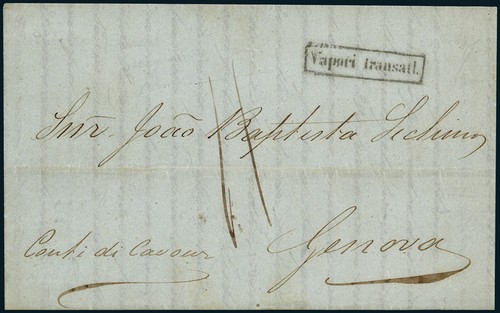 Vapori transatl.
Snr. João Baptista
11
Genova
Conti di Cavour